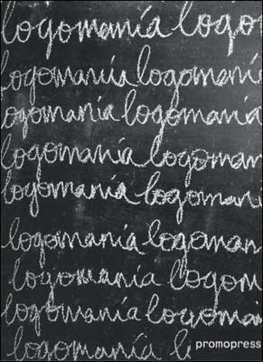 logomanía logo
logomanía logomaní
logomanía logomanía
logomanía logoman
logomanía logomaní
logomanía logoman
logomanía logomaní
logomanía logoman
logomanía l
promopress